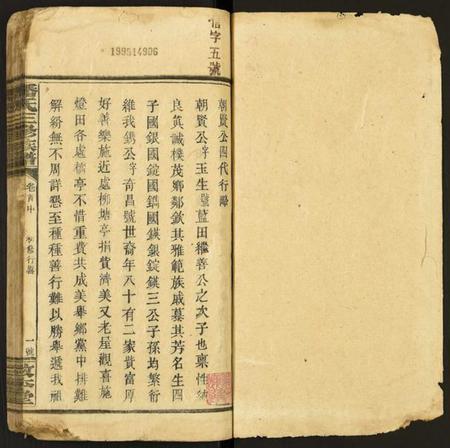 信字五號
199514906
朝賢公四代行略
朝賢公字玉生號藍田繼善公之次子也稟性純
良真誠樸茂鄉鄰欽其雅範族戚慕其芳名生四
子國銀國錠國鐫國鍈銀錠鍈三公子孫均繁衍
維我鐫公字奇昌號世裔年八十有二家貲富厚
好善樂施近處柳塘亭捐貲濟美又老屋觀喜施
燈田各處橋亭不惜重費共成美舉鄉黨中排難
解紛無不周詳懇至種種善行難以勝舉遞我祖
氏三修族譜
卷首中
行略
一號
堂